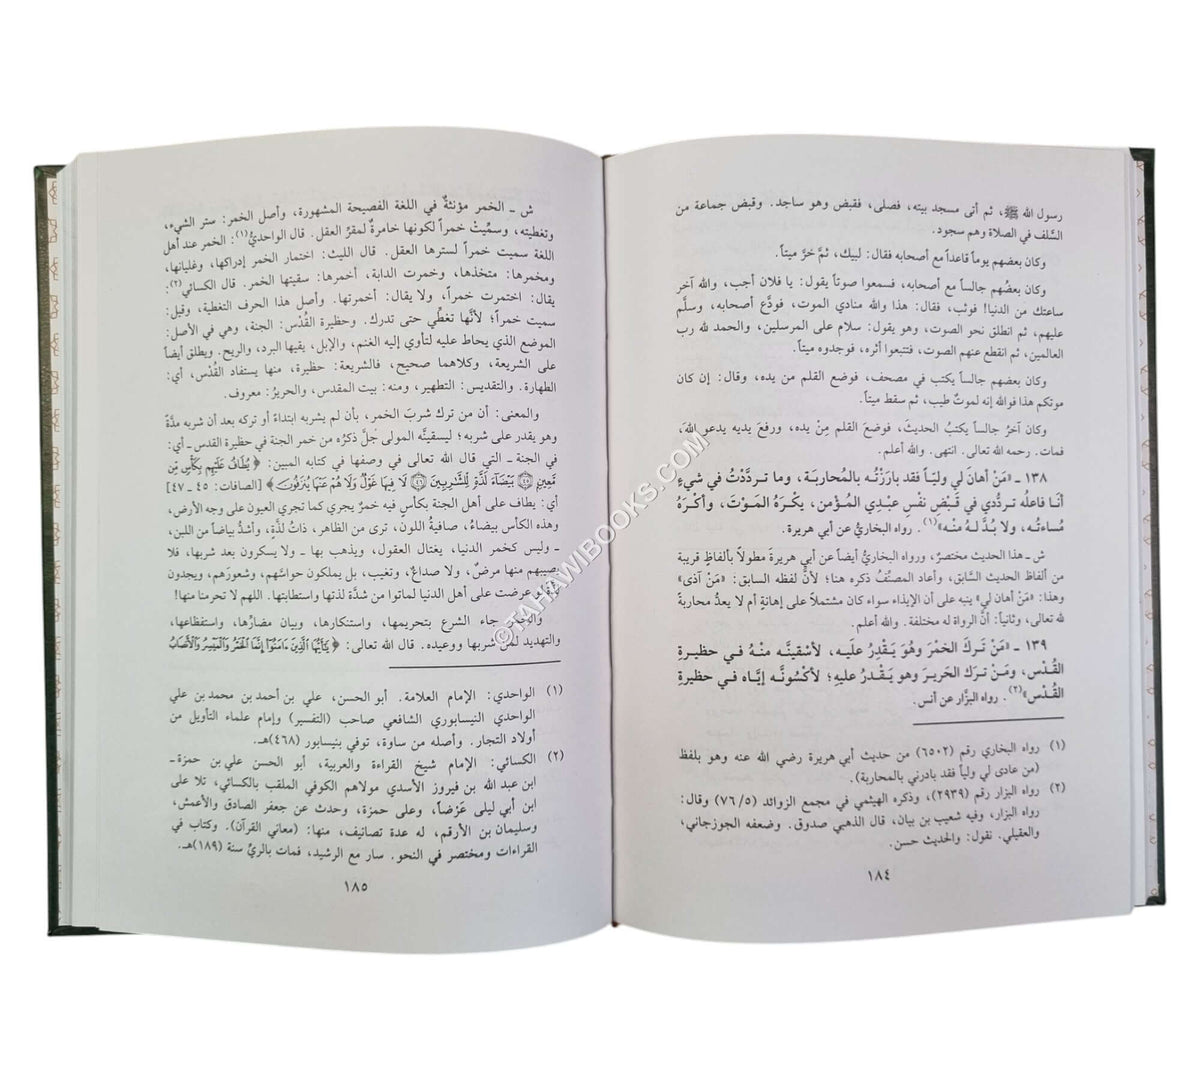 رسول الله ﷺ، ثم أتى مسجد بيته، فصلى، فقبض وهو ساجد. وقبض جماعة من
السَّلف في الصلاة وهم سجود.
وكان بعضهم يوماً قاعداً مع أصحابه فقال: لبيك، ثمَّ خرَّ ميتاً.
وكان بعضُهم جالساً مع أصحابه، فسمعوا صوتاً يقول: يا فلان أجب، والله آخر
ساعتك من الدنيا! فوثب، فقال: هذا والله منادي الموت، فودَّع أصحابه، وسلَّم
عليهم، ثم انطلق نحو الصوت، وهو يقول: سلام على المرسلين، والحمد لله رب
العالمين، ثم انقطع عنهم الصوت، فتتبعوا أثره، فوجدوه ميتاً.
وكان بعضهم جالساً يكتب في مصحف، فوضع القلم من يده، وقال: إن كان
موتكم هذا فوالله إنه لموتٌ طيب، ثم سقط ميتاً.
وكان آخرُ جالساً يكتبُ الحديثَ، فوضع القلم مِنْ يده، ورفعَ يديه يدعو اللهَ،
فمات. رحمه الله تعالى. انتهى. والله أعلم.
١٣٨ ـ «مَنْ أهانَ لي وليّاً فقد بارَزْتُه بالمُحاربَة، وما تردَّدْتُ في شيءٍ
أنا فاعلُه تردُّدي في قَبْضِ نفْسِ عبْدِي المُؤْمن، يكْرَهُ المَوْتَ، وأكْرَهُ
مُساءتُه، ولا بُدَّ لهُ منْه»(١). رواه البخاريُّ عن أبي هريرة.
ش ـ هذا الحديث مختصرٌ، ورواه البخاريُّ أيضاً عن أبي هريرةَ مطولاً بألفاظٍ قريبة
من ألفاظ الحديث السَّابق، وأعاد المصنِّفُ ذكره هنا؛ لأنَّ لفظه السابق: «مَنْ آذى»
وهذا: «مَنْ أهان لي» ينبه على أن الإيذاء سواء كان مشتملاً على إهانةٍ أم لا يعدُّ محاربةً
لله تعالى، وثانياً: أنَّ الرواة له مختلفة. والله أعلم.
١٣٩ ـ «مَنْ تَركَ الخمْرَ وهُوَ يَـقْدِرُ عليْه، لأسْقينَّه منْهُ في حظيرةِ
القُدْس، ومَنْ تركَ الحريرَ وهو يَـقْدرُ عليْهِ؛ لأكْسُونَّه إيَّاه في حظيرةِ
القُدْس»(٢). رواه البزَّار عن أنس.
(١) رواه البخاري رقم (٦٥٠٢) من حديث أبي هريرة رضي الله عنه وهو بلفظ
(من عادى لي ولياً فقد بادرني بالمحاربة).
(٢) رواه البزار رقم (٢٩٣٩)، وذكره الهيثمي في مجمع الزوائد (٧٦/٥) وقال:
رواه البزار، وفيه شعيب بن بيان، قال الذهبي صدوق. وضعفه الجوزجاني،
والعقيلي. نقول: والحديث حسن.
١٨٤
ش ـ الخمر مؤنثةٌ في اللغة الفصيحة المشهورة، وأصل الخمر: ستر الشيء،
وتغطيته، وسمِّيتْ خمراً لكونها خامرةٌ لمقرِّ العقل. قال الواحديُّ(١): الخمر عند أهل
اللغة سميت خمراً لسترها العقل. قال الليث: اختمار الخمر إدراكها، وغليانها،
ومخمرها: متخذها، وخمرت الدابة، أخمرها: سقيتها الخمر. قال الكسائي(٢):
يقال: اختمرت خمراً، ولا يقال: أخمرتها. وأصل هذا الحرف التغطية، وقيل:
سميت خمراً؛ لأنَّها تغطِّي حتى تدرك. وحظيرة القُدْس: الجنة، وهي في الأصل:
الموضع الذي يحاط عليه لتأوي إليه الغنم، والإبل، يقيها البرد، والريح. ويطلق أيضاً
على الشريعة، وكلاهما صحيح، فالشريعة: حظيرة، منها يستفاد القُدْس، أي:
الطهارة. والتقديس: التطهير، ومنه: بيت المقدس، والحريرُ: معروف.
والمعنى: أن من ترك شربَ الخمر، بأن لم يشربه ابتداءً أو تركه بعد أن شربه مدَّةً
وهو يقدر على شربه؛ ليسقينَّه المولى جُلَّ ذكرُه من خمر الجنة في حظيرة القدس ـ أي:
في الجنة ـ التي قال الله تعالى في وصفها في كتابه المبين: ﴿ يُطَافُ عَلَيْهِم بِكَأْسٍ مِّن
مَّعِينٍ ۝ بَيْضَاءَ لَذَّةٍ لِّلشَّارِبِينَ ۝ لَا فِيهَا غَوْلٌ وَلَا هُمْ عَنْهَا يُنزَفُونَ ﴾ [الصافات: ٤٥ ـ ٤٧]
أي: يطاف على أهل الجنة بكأسٍ فيه خمرٌ يجري كما تجري العيون على وجه الأرض،
وهذه الكأس بيضاءُ، صافيةُ اللون، ترى من الظاهر، ذاتُ لذَّةٍ، وأشدُّ بياضاً من اللبن،
ـ وليس كخمر الدنيا، يغتال العقول، ويذهب بها ـ ولا يسكرون بعد شربها، فلا
يصيبهم منها مرضٌ، ولا صداعٌ، وتغيب، بل يملكون حواسَّهم، وشعورَهم، ويجدون
عرضت على أهل الدنيا لماتوا من شدَّة لذتها واستطابتها. اللهم لا تحرمنا منها!
جاء الشرع بتحريمها، واستنكارها، وبيان مضارِّها، واستفظاعها،
والتهديد لمن شربها ووعيده. قال الله تعالى: ﴿ يَا أَيُّهَا الَّذِينَ ءَامَنُوا إِنَّمَا الْخَمْرُ وَالْمَيْسِرُ وَالْأَنصَابُ
(١) الواحدي: الإمام العلامة. أبو الحسن، علي بن أحمد بن محمد بن علي
الواحدي النيسابوري الشافعي صاحب (التفسير) وإمام علماء التأويل من
أولاد التجار. وأصله من ساوة، توفي بنيسابور (٤٦٨)هـ.
(٢) الكسائي: الإمام شيخ القراءة والعربية، أبو الحسن علي بن حمزة ـ
ابن عبد الله بن فيروز الأسدي مولاهم الكوفي الملقب بالكسائي، تلا على
ابن أبي ليلى عَرْضاً، وعلى حمزة، وحدث عن جعفر الصادق والأعمش،
وسليمان بن الأرقم، له عدة تصانيف، منها: (معاني القرآن). وكتاب في
القراءات ومختصر في النحو. سار مع الرشيد، فمات بالريِّ سنة (١٨٩)هـ.
١٨٥
©TAHAWIBOOKS.COM